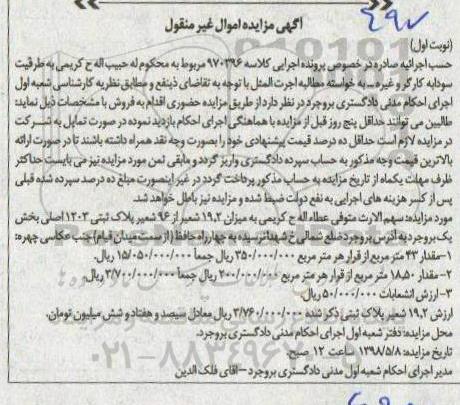 ۴۹۷
آگهی مزایده اموال غیر منقول
(نوبت اول)
حسب اجرائیه صادره در خصوص پرونده اجرایی کلاسه ۹۷۰۳۹۶ مربوط به محکوم له حبیب اله ح کریمی به طرفیت
سودابه کارگر و غیره... به خواسته مطالبه اجرت المثل با توجه به تقاضای ذینفع و مطابق نظریه کارشناسی شعبه اول
اجرای احکام مدنی دادگستری بروجرد در نظر دارد از طریق مزایده حضوری اقدام به فروش با مشخصات ذیل نماید:
طالبین می توانند حداقل پنج روز قبل از مزایده با هماهنگی اجرای احکام بازدید نموده در صورت تمایل به شرکت
در مزایده لازم است حداقل ده درصد قیمت پیشنهادی خود را بصورت وجه نقد همراه داشته باشند تا در صورت ارائه
بالاترین قیمت وجه مذکور به حساب سپرده دادگستری واریز گردد و مابقی ثمن مورد مزایده نیز می بایست حداکثر
ظرف مهلت یکماه از تاریخ مزایده به حساب مذکور پرداخت گردد در غیر اینصورت مبلغ ده درصد سپرده شده قبلی
پس از کسر هزینه های اجرایی به نفع دولت ضبط شده و مزایده نیز باطل خواهد شد.
مورد مزایده: سهم الارث متوفی عطاء اله ح کریمی به میزان ۱۹.۲ شعیر از ۹۶ شعیر پلاک ثبتی ۱۲۰۳ اصلی بخش
یک بروجرد به آدرس بروجرد ضلع شمالی خ شهدا نرسیده به چهارراه حافظ (از سمت میدان قیام) جنب عکاسی چهره:
۱- مقدار ۴۳ متر مربع از قرار هر متر مربع ۳۵۰/۰۰۰/۰۰۰ ریال جمعا ۱۵/۰۵۰/۰۰۰/۰۰۰ ریال.
۲- مقدار ۱۸.۵۰ متر مربع از قرار هر متر مربع ۲۰۰/۰۰۰/۰۰۰ ریال جمعا ۳/۷۰۰/۰۰۰/۰۰۰ ریال.
۳- ارزش انشعابات ۵۰/۰۰۰/۰۰۰ ریال.
ارزش ۱۹.۲ شعیر پلاک ثبتی ذکر شده ۳/۷۶۰/۰۰۰/۰۰۰ ریال معادل سیصد و هفتاد و شش میلیون تومان.
محل مزایده: دفتر شعبه اول اجرای احکام مدنی دادگستری بروجرد.
تاریخ مزایده: ۱۳۹۸/۵/۸ ساعت ۱۲ صبح.
مدیر اجرای احکام شعبه اول مدنی دادگستری بروجرد – آقای فلک الدین
۰۲۱-۸۸۳۴۹۶۷۰-۵